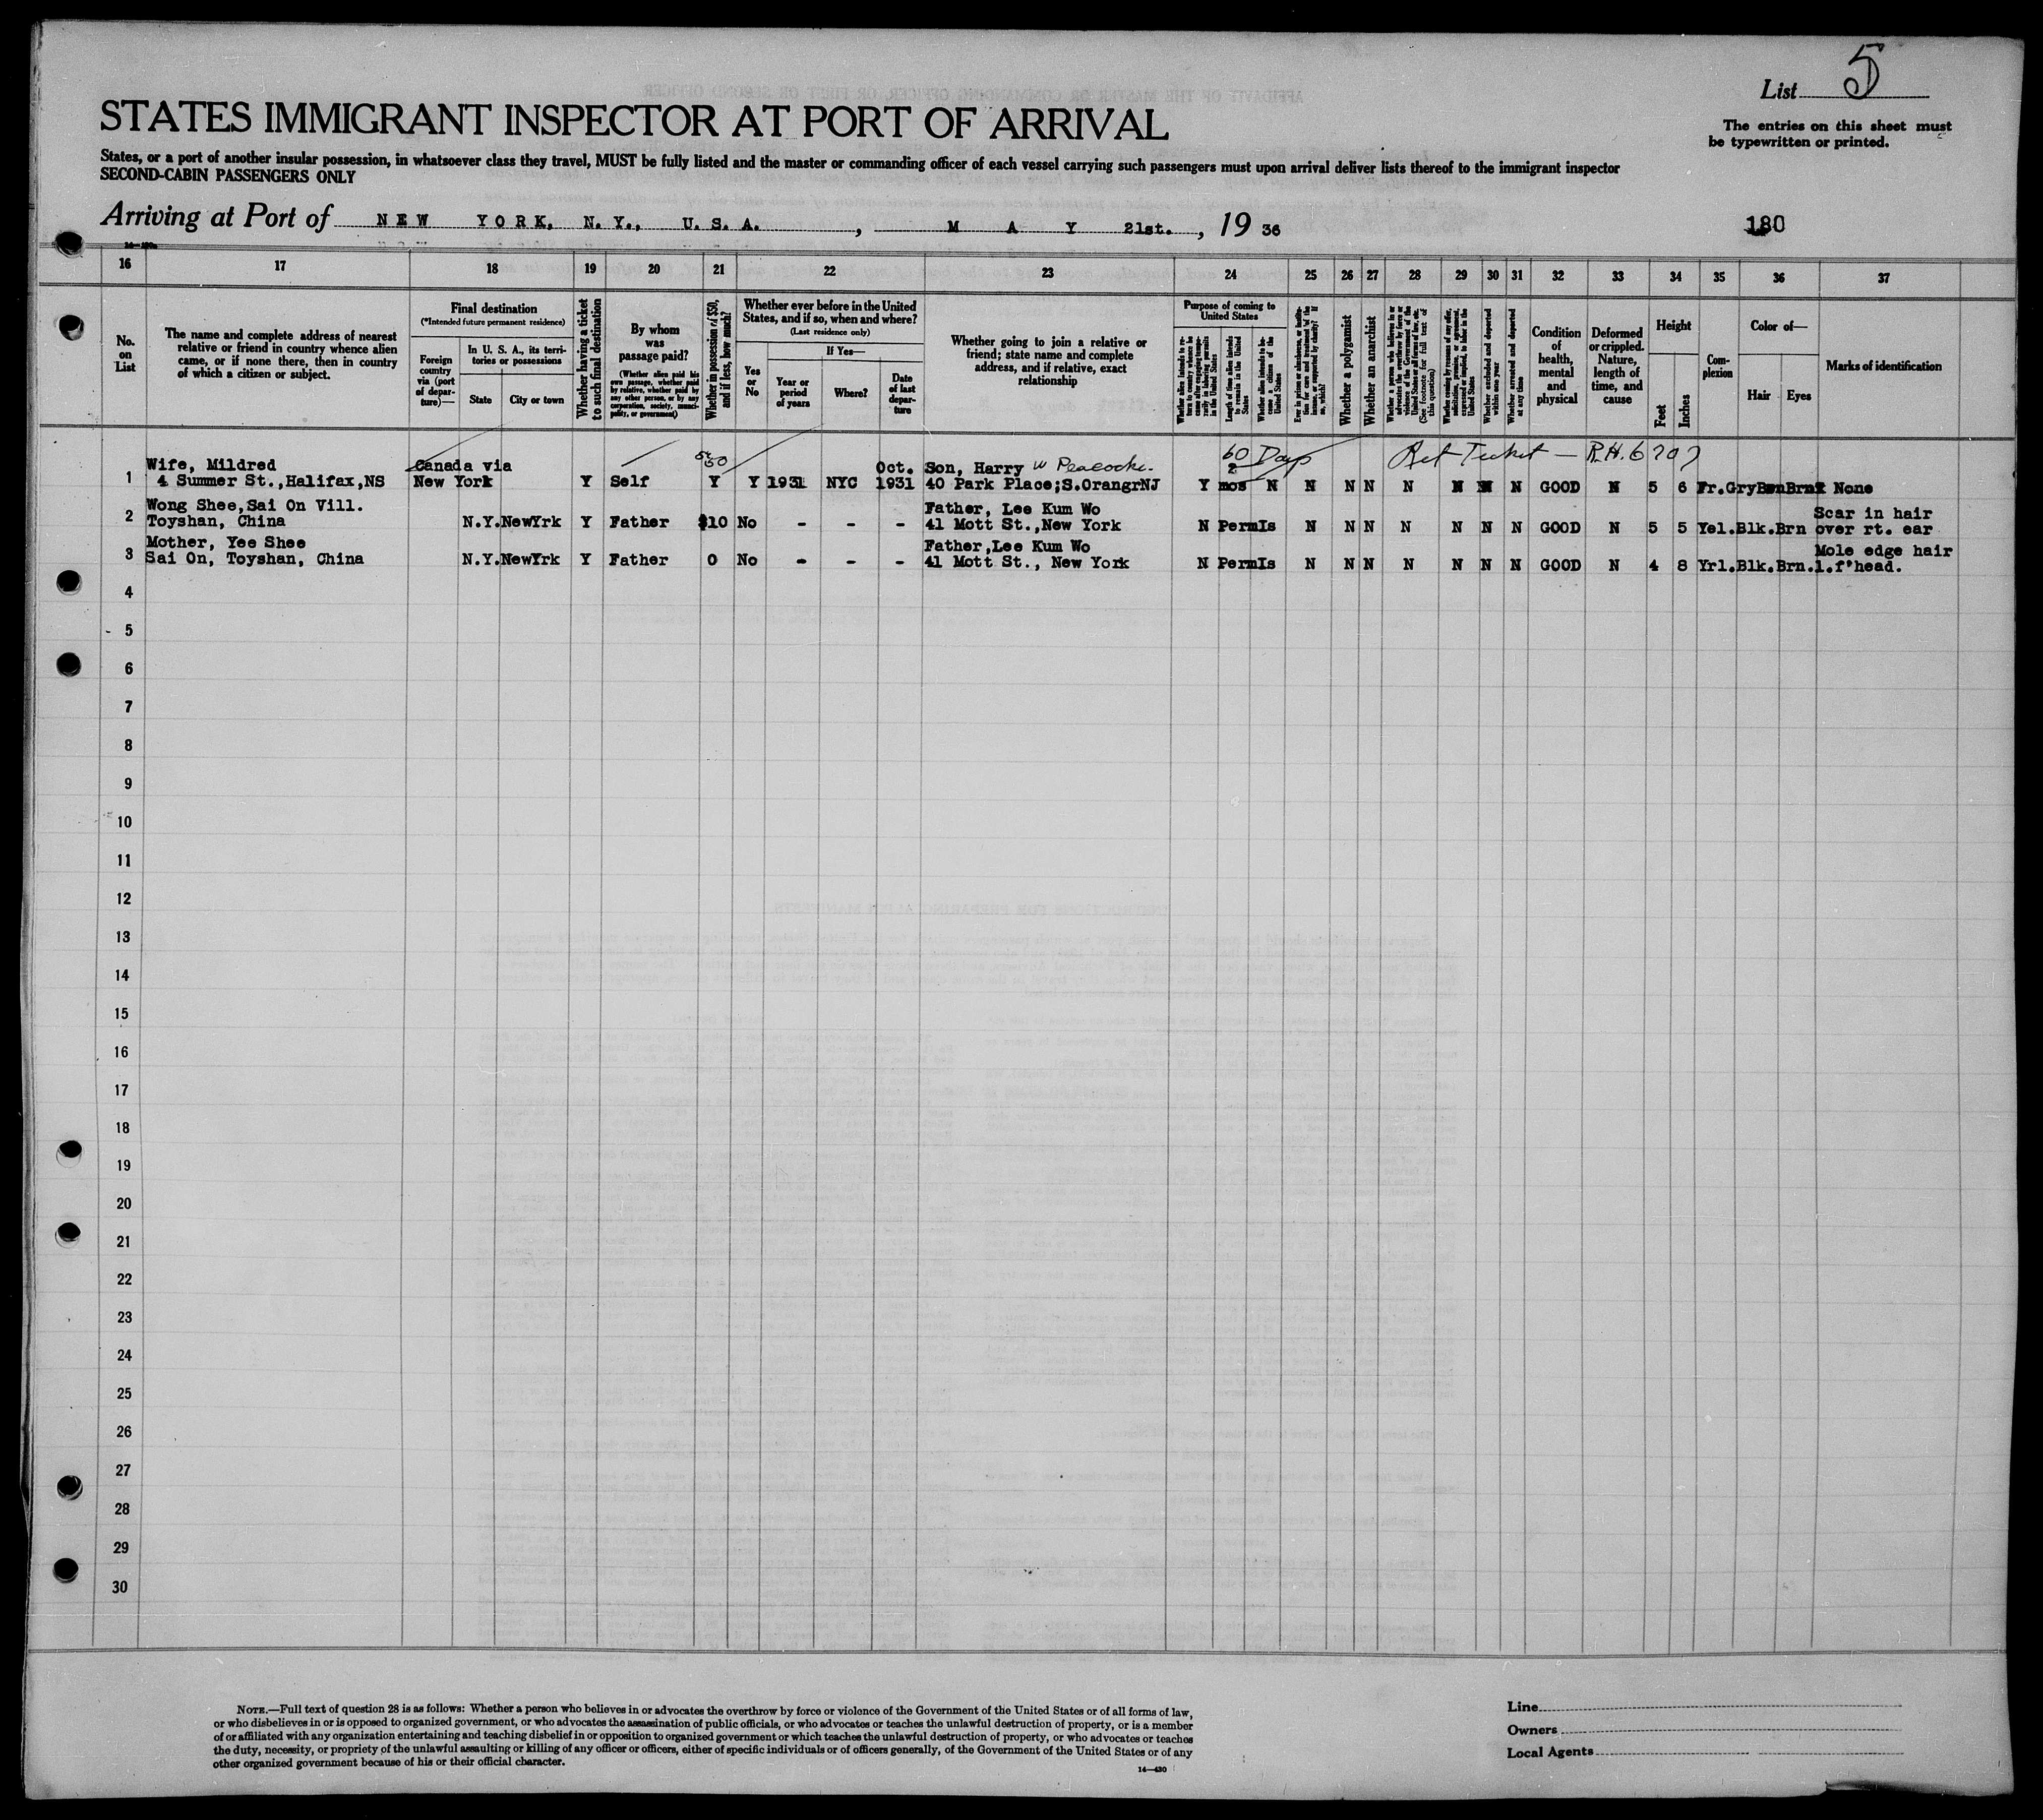 List 5
STATES IMMIGRANT INSPECTOR AT PORT OF ARRIVAL
The entries on this sheet must
be typewritten or printed.
States, or a port of another insular possession, in whatsoever class they travel, MUST be fully listed and the master or commanding officer of each vessel carrying such passengers must upon arrival deliver lists thereof to the immigrant inspector
SECOND-CABIN PASSENGERS ONLY
Arriving at Port of NEW YORK, N.Y., U.S.A., MAY 21st., 19 36
180
16 17 18 19 20 21 22 23 24 25 26 27 28 29 30 31 32 33 34 35 36 37
No. on List
The name and complete address of nearest relative or friend in country whence alien came, or if none there, then in country of which a citizen or subject.
Final destination
(*Intended future permanent residence)
Foreign country via (port of departure)—
In U. S. A., its territories or possessions
State
City or town
Whether having a ticket to such final destination
By whom was passage paid?
(Whether alien paid his own passage, whether paid by relative, whether paid by any other person, or by any corporation, society, municipality, or government)
Whether in possession of $50, and if less, how much?
Whether ever before in the United States, and if so, when and where?
(Last residence only)
Yes or No
If Yes—
Year or period of years
Where?
Date of last departure
Whether going to join a relative or friend; state name and complete address, and if relative, exact relationship
Purpose of coming to United States
Length of time alien intends to remain in the United States
Whether alien intends to become a citizen of the United States
Whether a polygamist
Whether an anarchist
(See footnote for full text of this question)
Whether excluded and deported within one year
Whether arrested and deported at any time
Condition of health, mental and physical
Deformed or crippled. Nature, length of time, and cause
Height
Feet
Inches
Complexion
Color of—
Hair
Eyes
Marks of identification
50 60 Days Ret Ticket — R.H. 6707
1 Wife, Mildred Canada via Oct. Son, Harry W Peacocke. 2
4 Summer St.,Halifax,NS New York Y Self Y Y 1931 NYC 1931 40 Park Place;S.OrangrNJ Y mos N N N N N N N N GOOD N 5 6 Fr.GryBrnBrn None
2 Wong Shee,Sai On Vill. Father, Lee Kum Wo Scar in hair
Toyshan, China N.Y.NewYrk Y Father $10 No - - - 41 Mott St.,New York N PermIs N N N N N N N GOOD N 5 5 Yel.Blk.Brn over rt. ear
3 Mother, Yee Shee Father,Lee Kum Wo Mole edge hair
Sai On, Toyshan, China N.Y.NewYrk Y Father 0 No - - - 41 Mott St., New York N PermIs N N N N N N N GOOD N 4 8 Yrl.Blk.Brn.l.f'head.
4
5
6
7
8
9
10
11
12
13
14
15
16
17
18
19
20
21
22
23
24
25
26
27
28
29
30
NOTE.—Full text of question 28 is as follows: Whether a person who believes in or advocates the overthrow by force or violence of the Government of the United States or of all forms of law,
or who disbelieves in or is opposed to organized government, or who advocates the assassination of public officials, or who advocates or teaches the unlawful destruction of property, or is a member
of or affiliated with any organization entertaining and teaching disbelief in or opposition to organized government or which teaches the unlawful destruction of property, or who advocates or teaches
the duty, necessity, or propriety of the unlawful assaulting or killing of any officer or officers, either of specific individuals or of officers generally, of the Government of the United States or of any
other organized government because of his or their official character.
14—430
Line
Owners
Local Agents